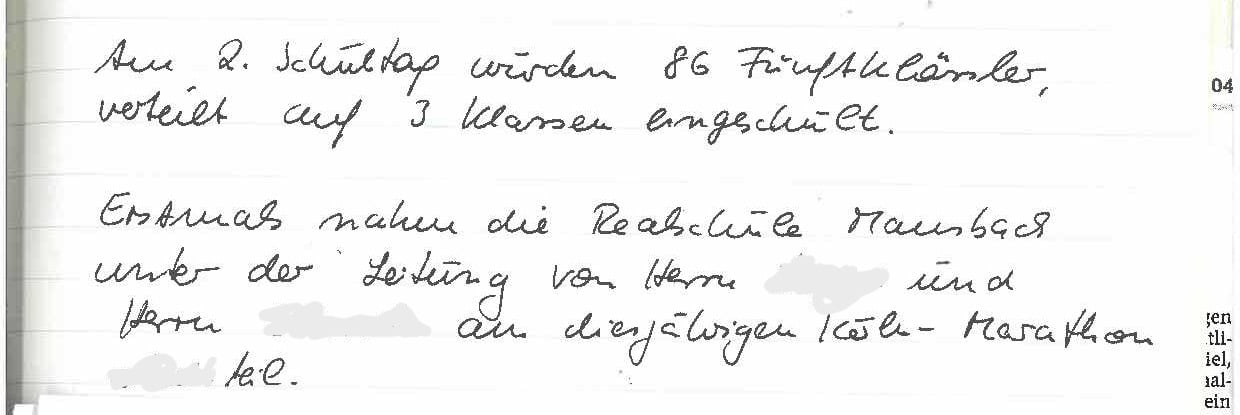 Am 2. Schultag wurden 86 Fünftklässler,
verteilt auf 3 Klassen eingeschult.
Erstmals nahm die Realschule Mausbach
unter der Leitung von Herrn und
Herrn am diesjährigen Köln-Marathon
teil.
04
gen
tli-
iel,
nal-
ein